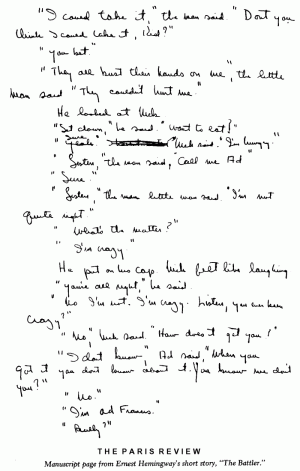 "I could take it," the man said. "Don't you
think I could take it, kid?"
"You bet."
"They all bust their hands on me," the little
man said "They couldn't hurt me."
He looked at Nick
"Sit down," he said. "Want to eat?"
Nick said. "I'm hungry."
"Listen," the man said, "Call me Ad"
"Sure."
"Listen," the man little man said "I'm not
quite right."
"What's the matter?"
"I'm crazy"
He put on his cap. Nick felt like laughing
"You're all right," he said.
"No I'm not. I'm crazy. Listen, you ever been
crazy?"
"No," Nick said. "How does it get you?"
"I don't know," Ad said, "When you
got it you don't know about it. You know me don't
you?"
"No."
"I'm Ad Francis."
"Really?"
THE PARIS REVIEW
Manuscript page from Ernest Hemingway's short story, "The Battler."